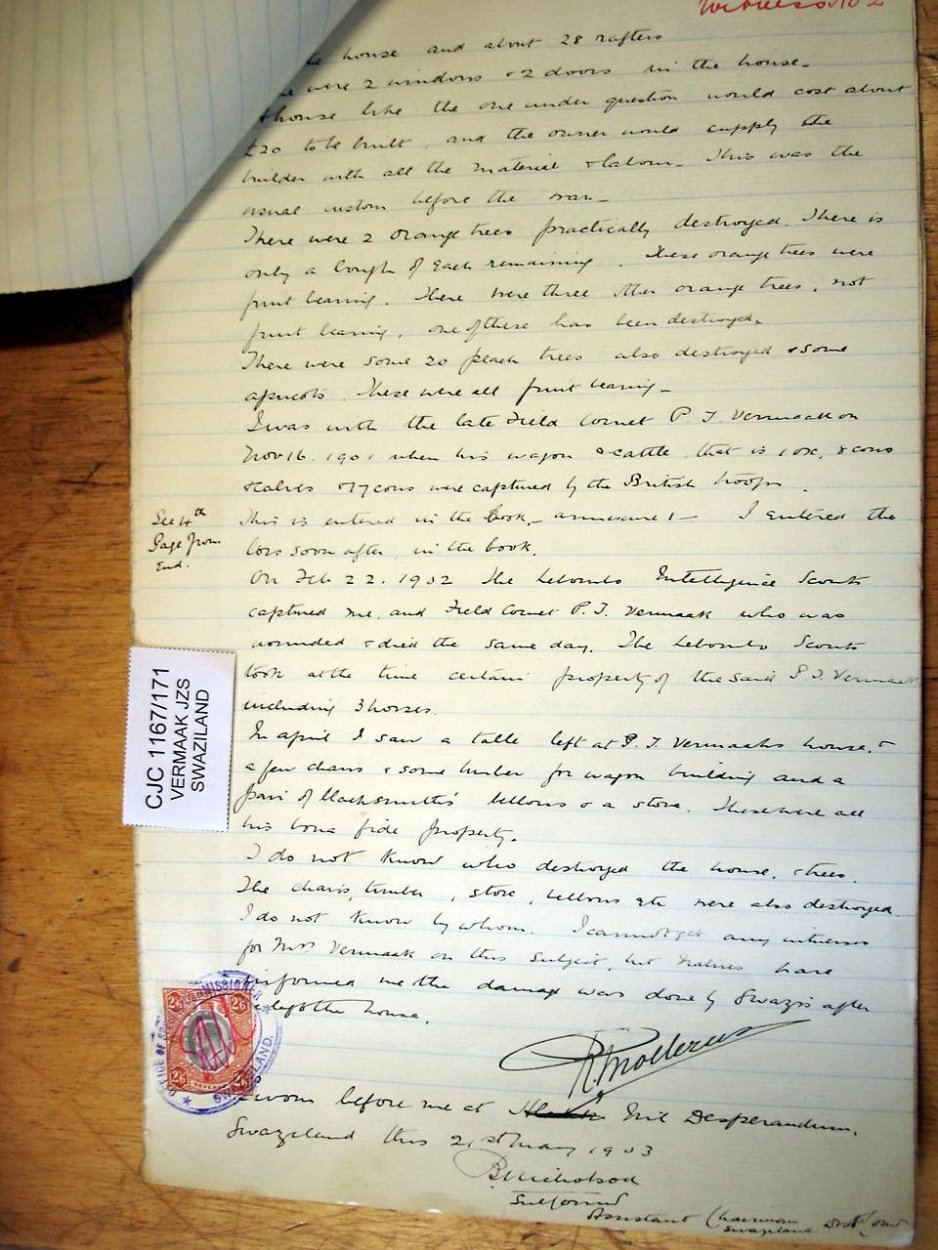 Witness No 2
house and about 28 rafters
were 2 windows & 2 doors in the house.
A house like the one under question would cost about
£20 to be built, and the owner would supply the
builder with all the material & labour. This was the
usual custom before the war.
There were 2 orange trees practically destroyed. There is
only a bough of each remaining. These orange trees were
fruit bearing. There were three other orange trees, not
fruit bearing, one of these has been destroyed.
There were some 20 peach trees also destroyed & some
apricots. These were all fruit bearing.
I was with the late Field Cornet P. J. Vermaak on
Nov 16. 1901 when his wagon & cattle, that is 1 ox, 8 cows
& calves & 17 cows were captured by the British troops.
See 4th
Page from
End.
This is entered in the book, annexure 1 — I entered the
loss soon after, in the book.
On Feb 22. 1902 the Lebombo Intelligence Scouts
captured me, and Field Cornet P. J. Vermaak who was
wounded & died the same day. The Lebombo Scouts
took at the time certain property of the said P. J. Vermaak
including 3 horses.
In April I saw a table left at P. J. Vermaaks house, &
a few chairs & some timber for wagon building and a
pair of blacksmiths' bellows & a stove. These were all
his bona fide property.
I do not know who destroyed the house, & trees.
The chairs, timber, stove, bellows etc were also destroyed.
I do not know by whom. I cannot get any witnesses
for Mrs Vermaak on this subject, but natives have
informed me the damage was done by Swazis after
left the house.
Sworn before me at Nil Desperandum,
Swaziland this 21st May 1903
B Nicholson
Assistant Chairman Dist Com
Swaziland
CJC 1167/171
VERMAAK JZS
SWAZILAND
2/6 2/6
2/6 2/6
REVENUE
OFFICE OF COMMISSIONER
SWAZILAND